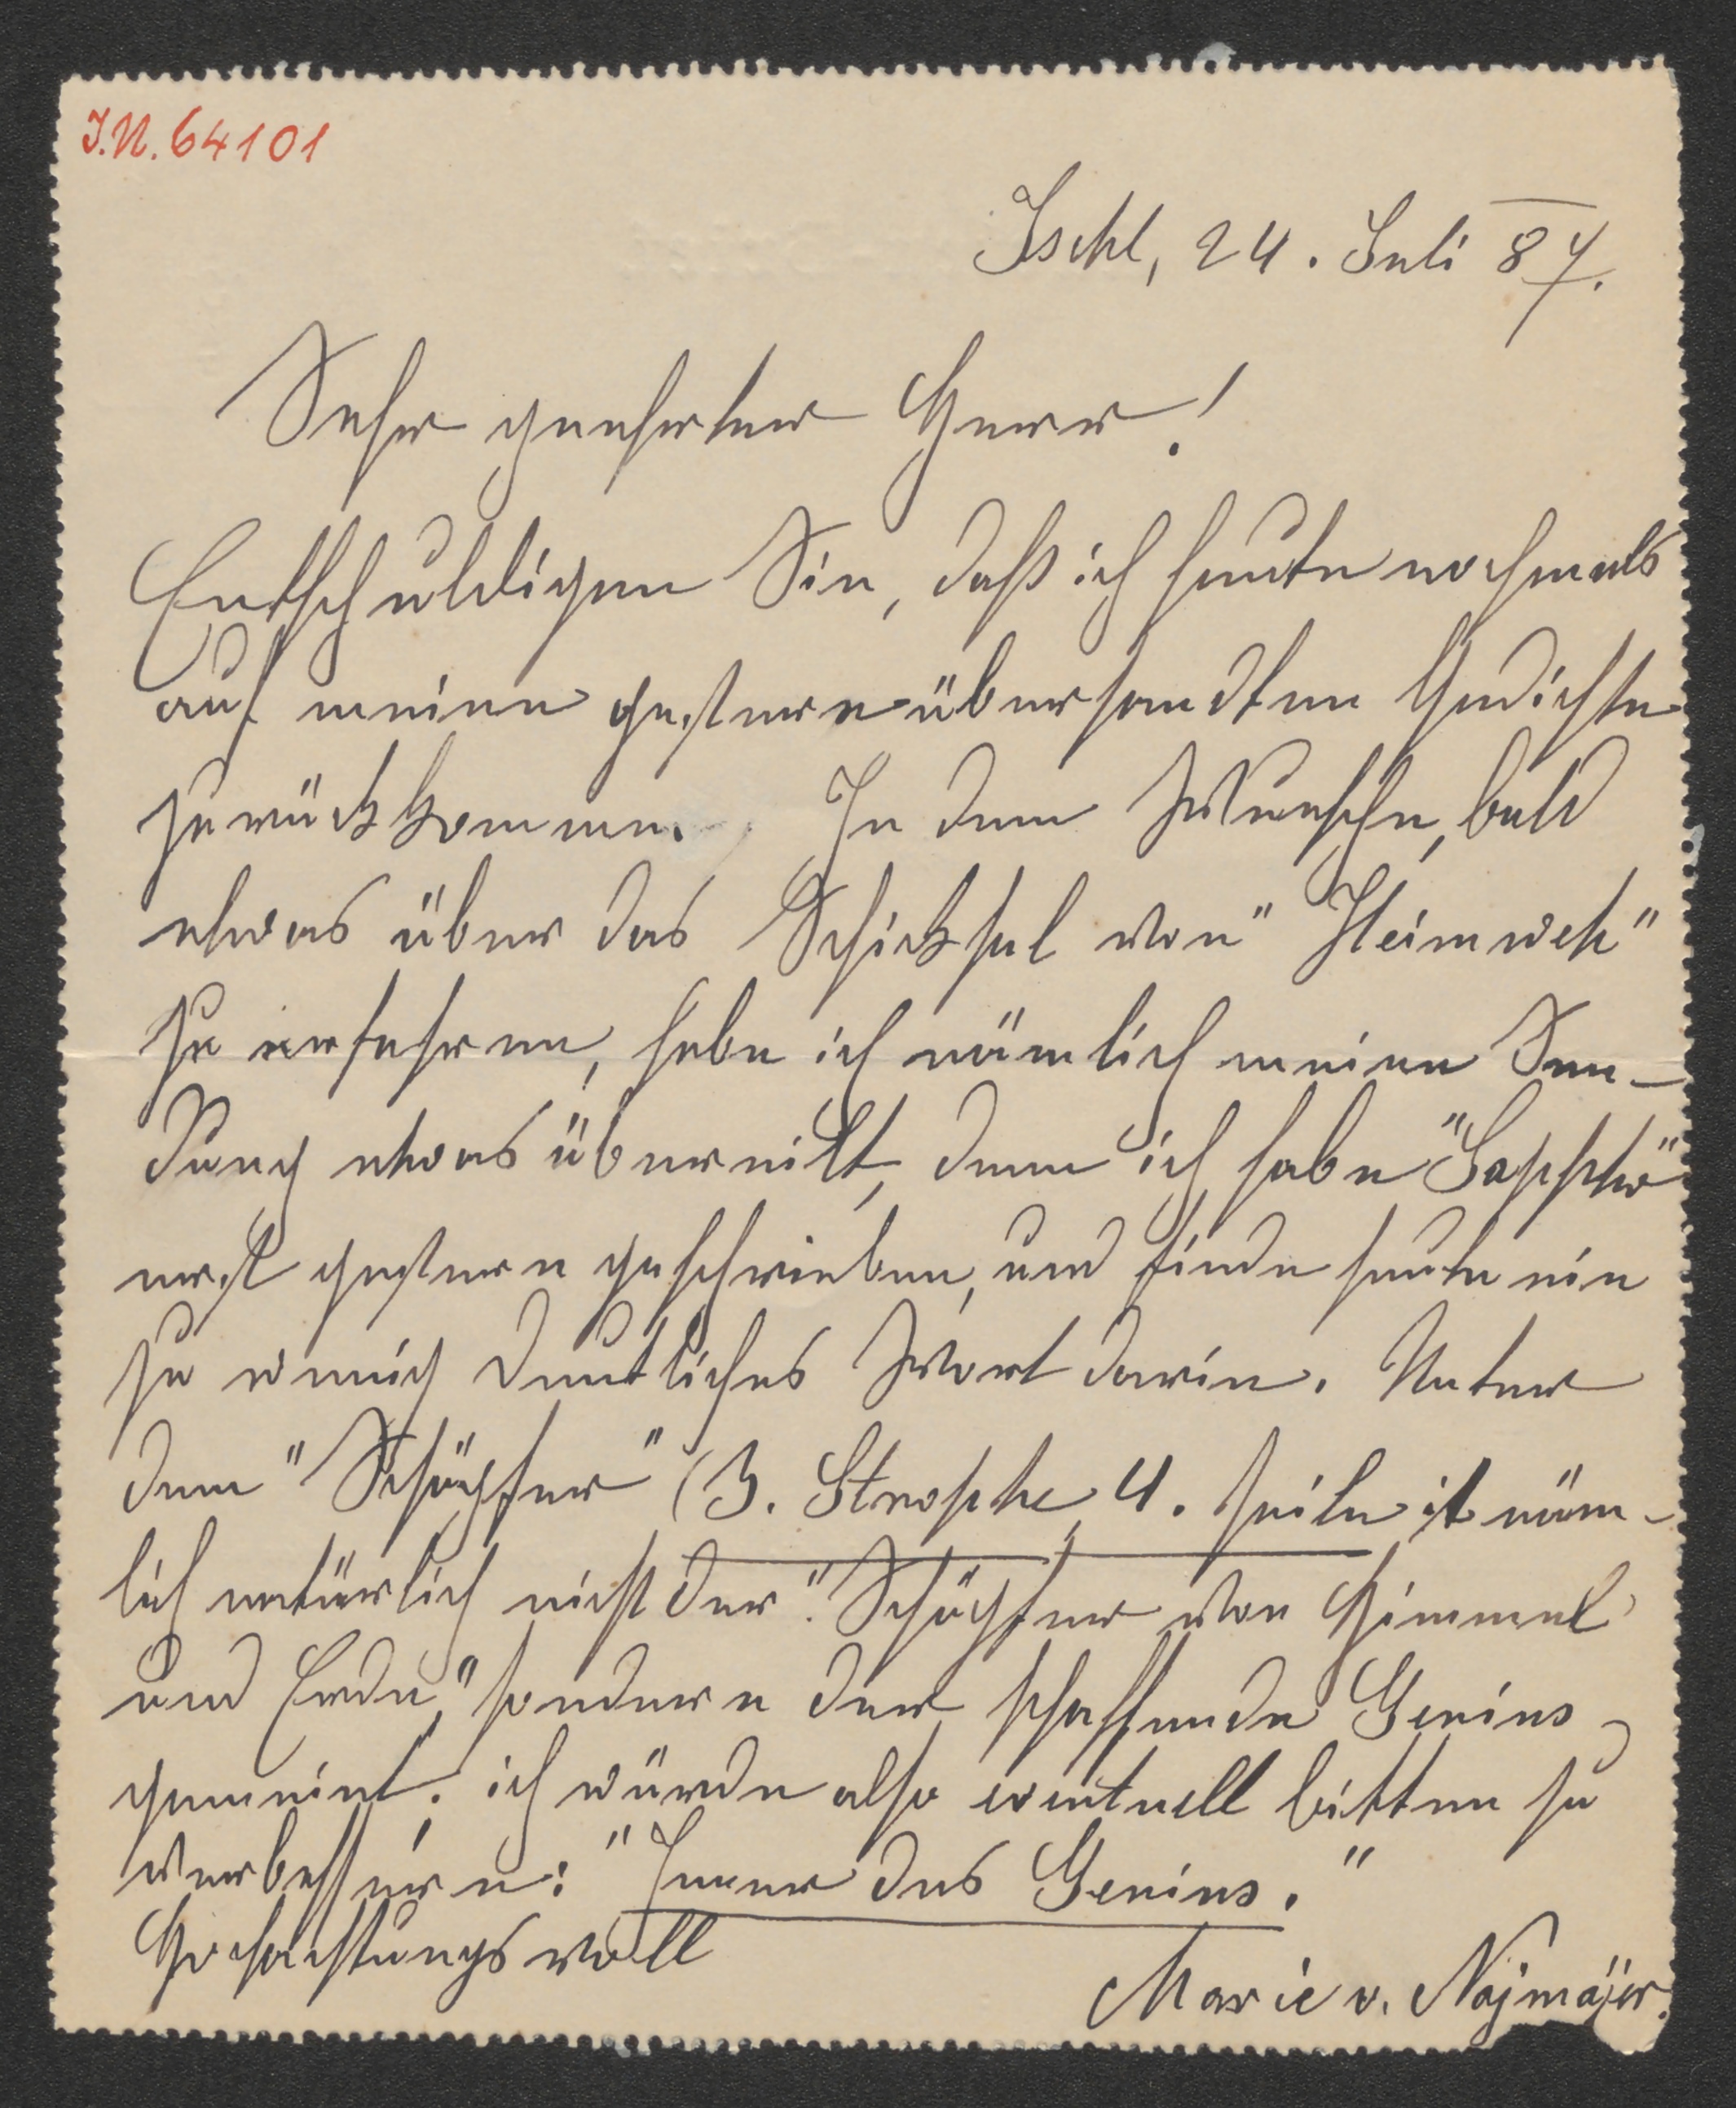 J.N. 64101
Ischl, 24. Juli 87.
Sehr geehrter Herr!
Entschuldigen Sie, daß ich heute nochmals
auf meine gestern übersandten Gedichte
zurückkomme. In dem Wunsche, bald
etwas über das Schicksal von "Heimweh"
zu erfahren, habe ich nämlich meine Sen-
dung etwas übereilt, denn ich habe "Sappho"
erst gestern geschrieben, und finde heute ein
zu wenig deutliches Wort darin. Unter
dem "Schöpfer" (3. Strophe, 4. Zeile ist näm-
lich natürlich nicht der "Schöpfer von Himmel
und Erde," sondern der schaffende Genius
gemeint; ich würde also eventuell bitten zu
verbessern: "Jener des Genius."
Hochachtungsvoll
Marie v. Najmájer.